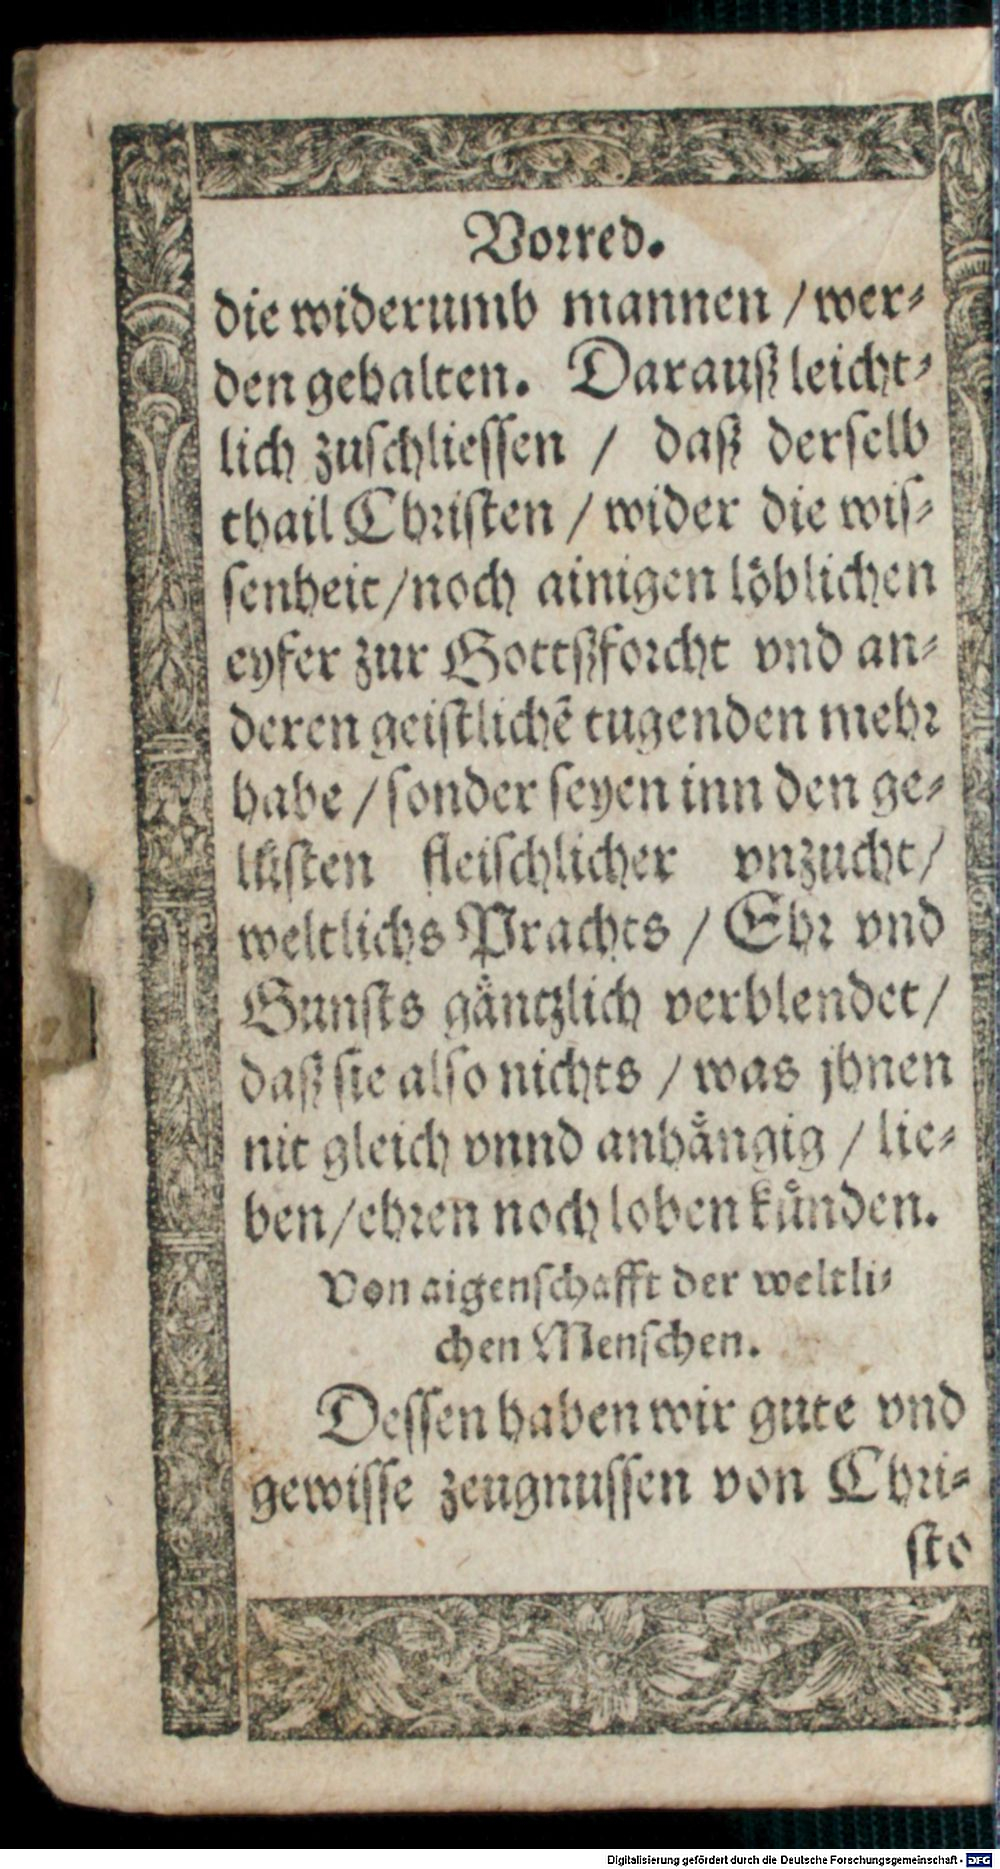 Vorred.
die widerumb mannen / wer-
den gehalten. Darauß leicht-
lich zuschliessen / daß derselb
thail Christen / wider die wis-
senheit / noch ainigen löblichen
eyfer zur Gottßforcht vnd an-
deren geistlichẽ tugenden mehr
habe / sonder seyen inn den ge-
lüsten fleischlicher vnzucht /
weltlichs Prachts / Ehr vnd
Gunsts gäntzlich verblendet /
daß sie also nichts / was jhnen
nit gleich vnnd anhängig / lie-
ben / ehren noch loben künden.
Von aigenschafft der weltli-
chen Menschen.
Dessen haben wir gute vnd
gewisse zeugnussen von Chri-
sto
Digitalisierung gefördert durch die Deutsche Forschungsgemeinschaft - DFG